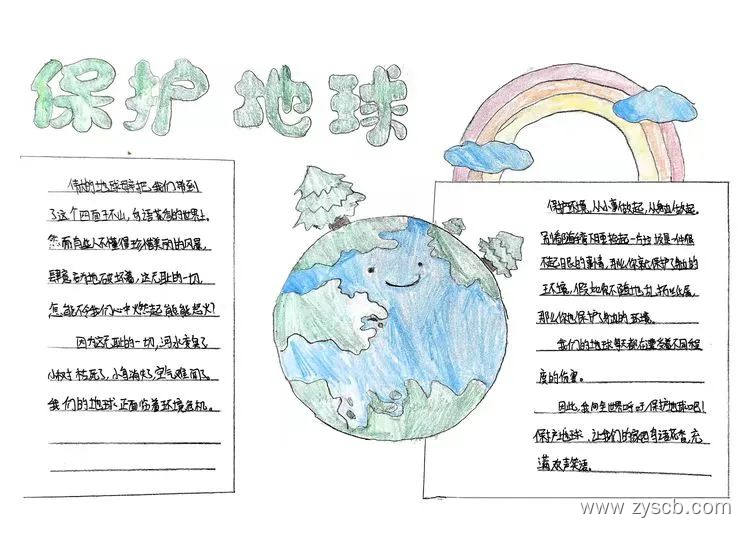 保护地球
伟大的地球母亲把我们带到
了这个四面环山,鸟语花香的世界上。
然而有些人不懂得珍惜美丽的风景,
肆意的破坏着,这无耻的一切,
怎能不令我们心中燃起熊熊怒火?
因为这无耻的一切,河水变臭了
小树枯死了,小鸟消失了,空气难闻了。
我们的地球正面临着环境危机。
保护环境,从小事做起,从身边做起。
别看随手捡起一片垃圾是一件很
不起眼的事情,那么你就保护了身边的
环境,假如你不随地乱扔纸屑,
那么你也保护了身边的环境。
我们的地球每天都在遭受着不同程
度的伤害。
因此,我向全世界呼吁:保护地球吧!
保护地球,让我们的家园鸟语花香,充
满欢声笑语。
www.zyscb.com